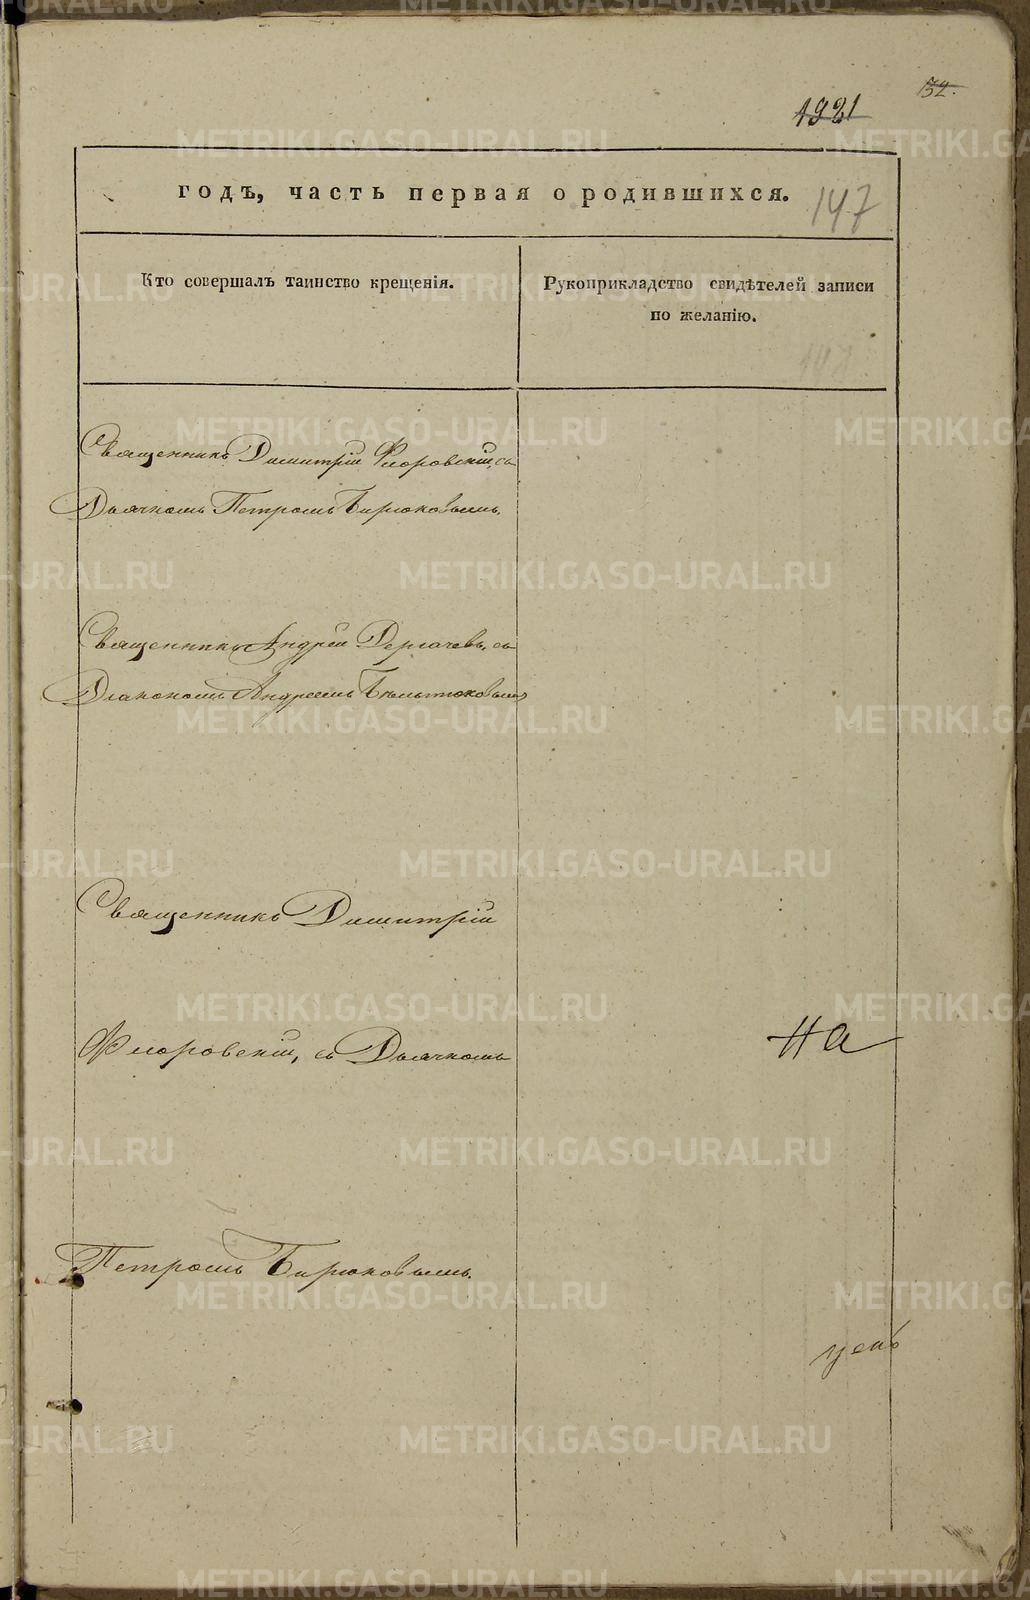 132.
1921
годъ, часть первая о родившихся.
147
Кто совершалъ таинство крещенія.
Рукоприкладство свидѣтелей записи
по желанію.
Священникъ Димитрій Флоровскій, съ
Дьячкомъ Петромъ Бирюковымъ.
Священникъ Андрей Дергачевъ, съ
Діакономъ Андреемъ
Священникъ Димитрій
Флоровскій, съ Дьячкомъ
На
Петромъ Бирюковымъ.
METRIKI.GASO-URAL.RU